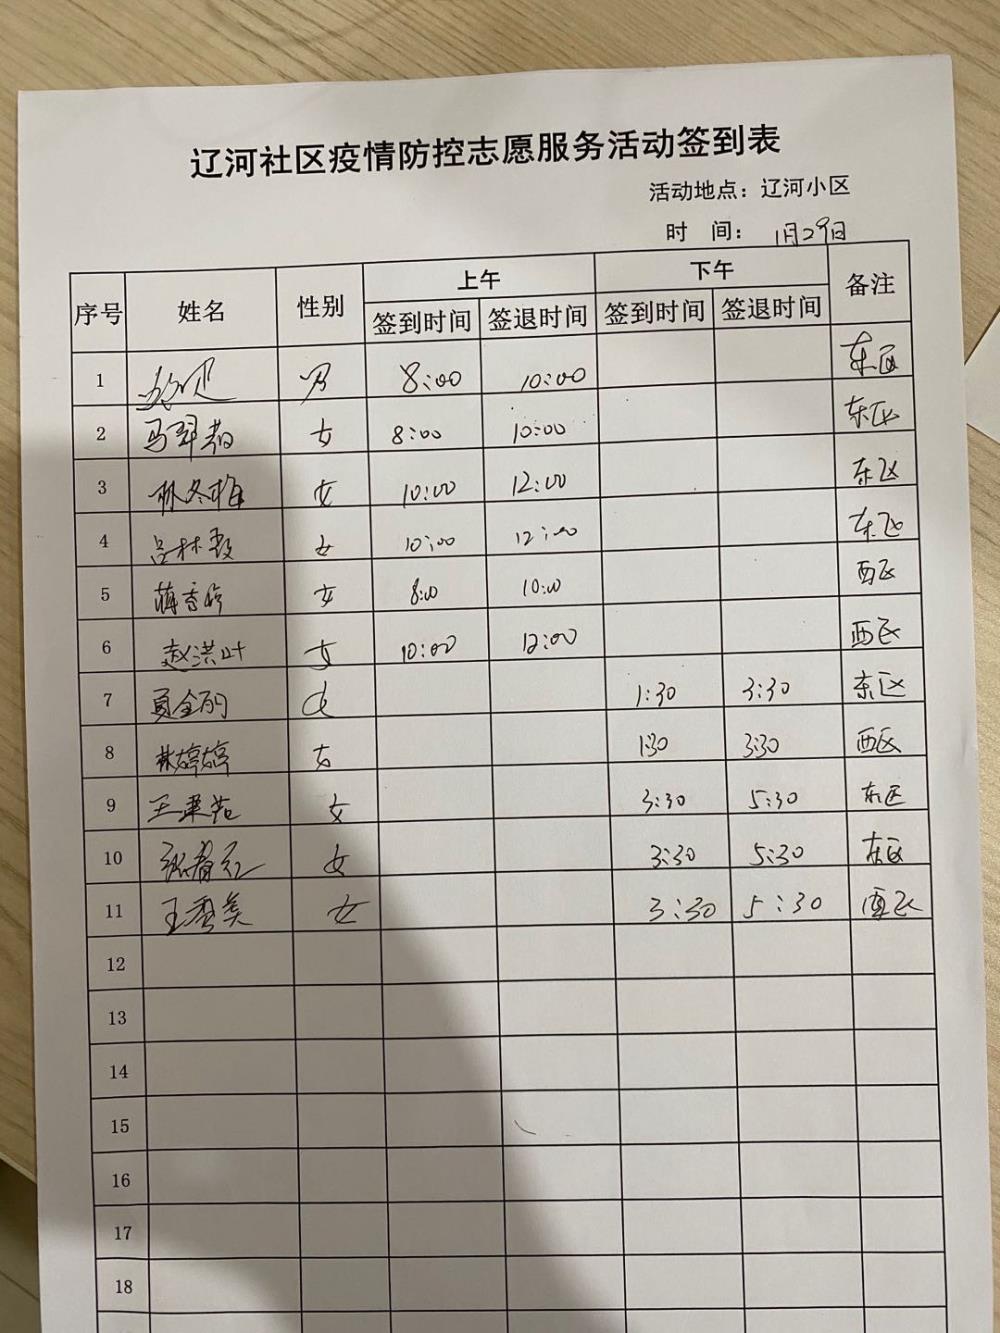 辽河社区疫情防控志愿服务活动签到表
活动地点：辽河小区
时 间： 1月29日
序号 姓名 性别 上午 下午 备注
签到时间 签退时间 签到时间 签退时间
1 男 8:00 10:00 东区
2 女 8:00 10:00 东区
3 林冬梅 女 10:00 12:00 东区
4 女 10:00 12:00 东区
5 女 8:00 10:00 西区
6 赵洪叶 女 10:00 12:00 西区
7 女 1:30 3:30 东区
8 林婷婷 女 1:30 3:30 西区
9 女 3:30 5:30 东区
10 张春红 女 3:30 5:30 东区
11 王秀美 女 3:30 5:30 西区
12
13
14
15
16
17
18